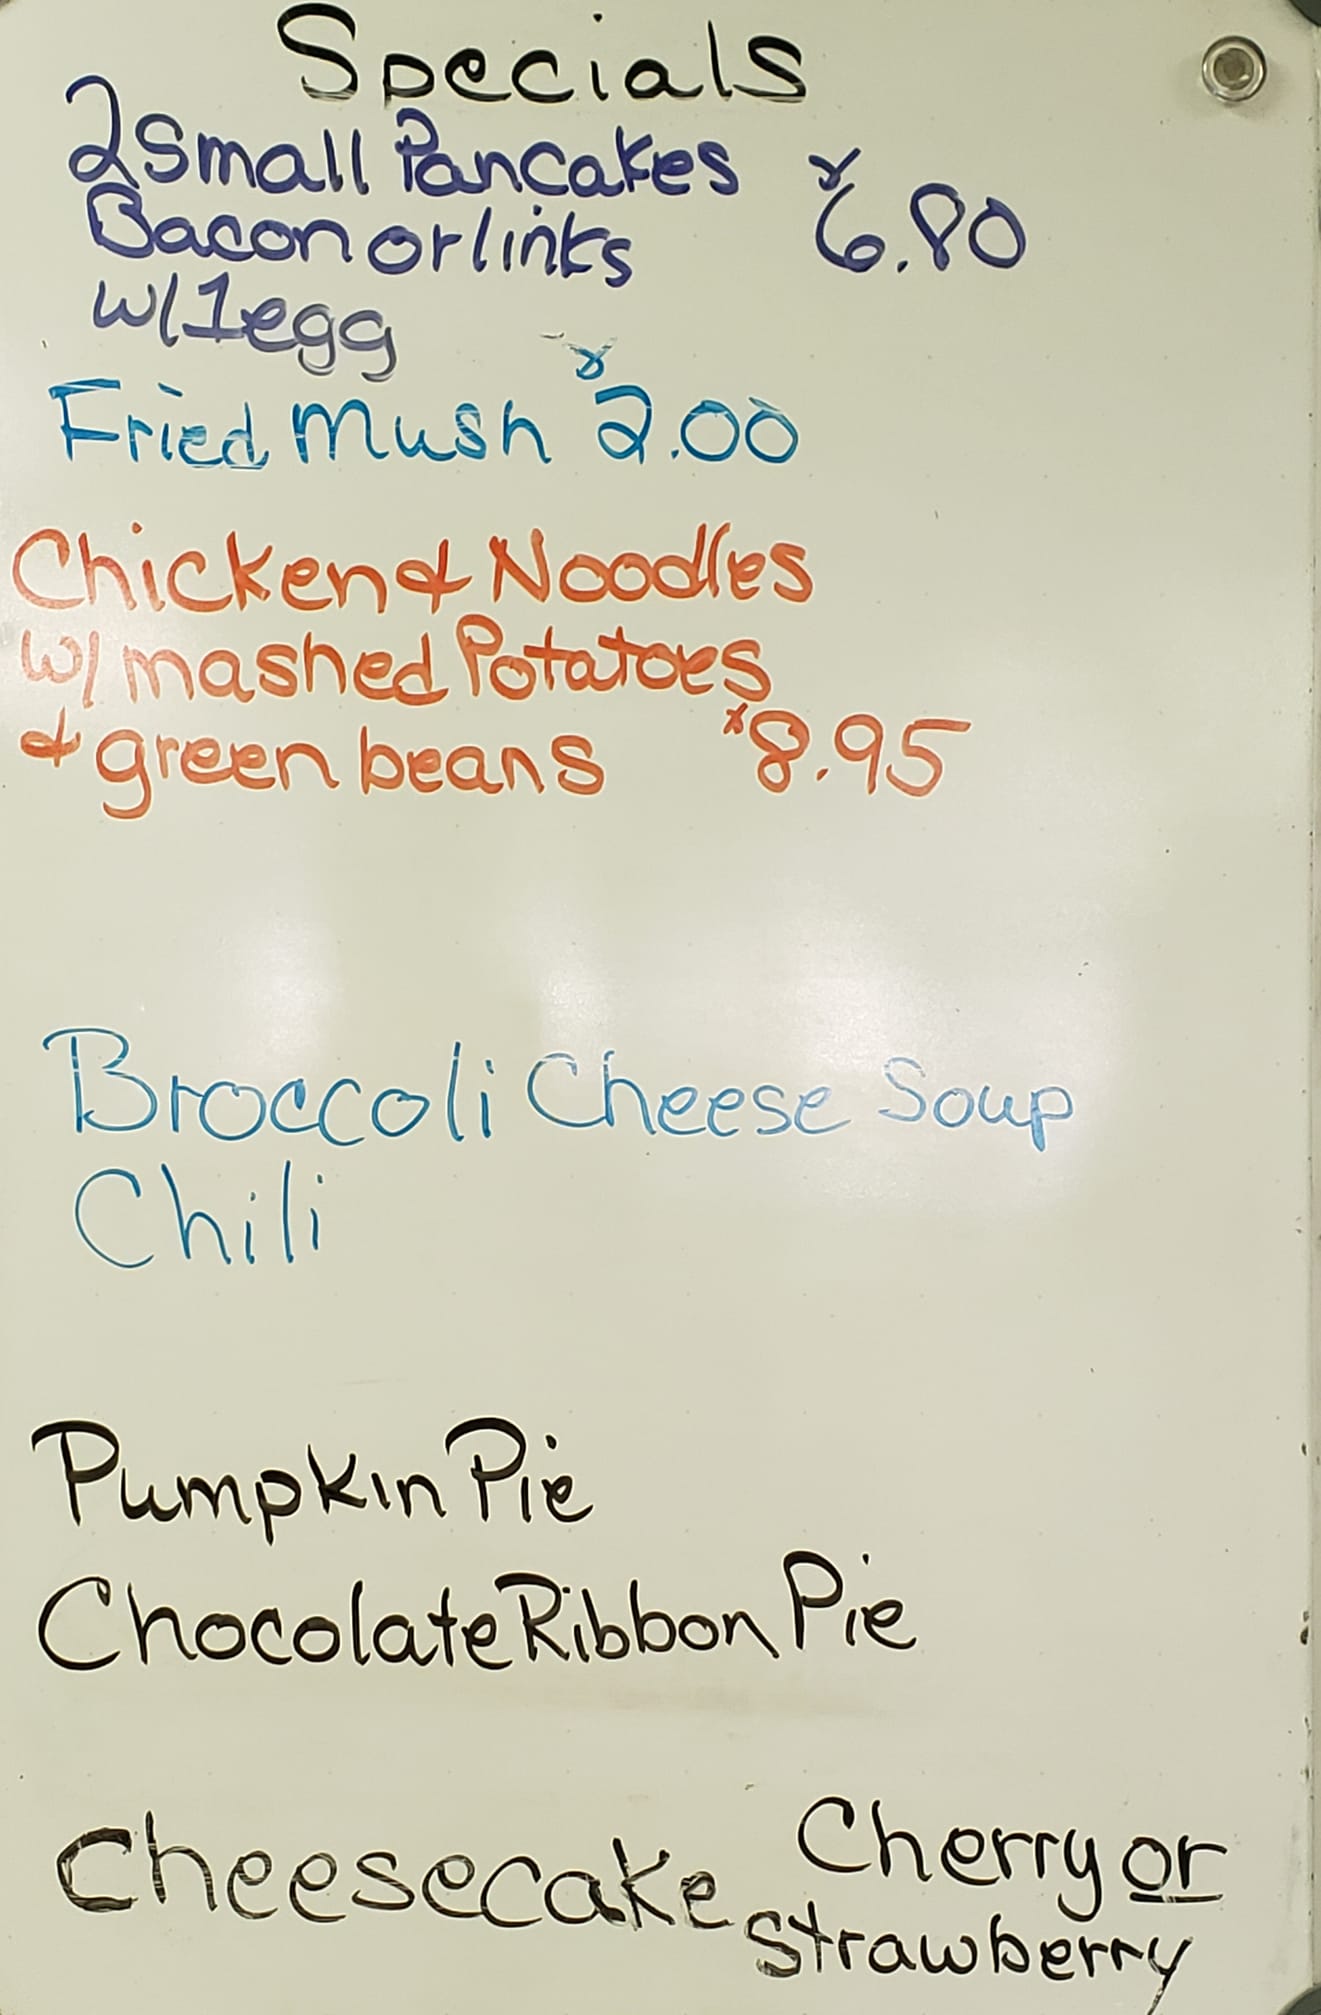 Specials
2 Small Pancakes
Bacon or links $6.80
w/1 egg
Fried Mush $2.00
Chicken & Noodles
w/ mashed Potatoes
& green beans $8.95
Broccoli Cheese Soup
Chili
Pumpkin Pie
Chocolate Ribbon Pie
Cheesecake Cherry or
Strawberry